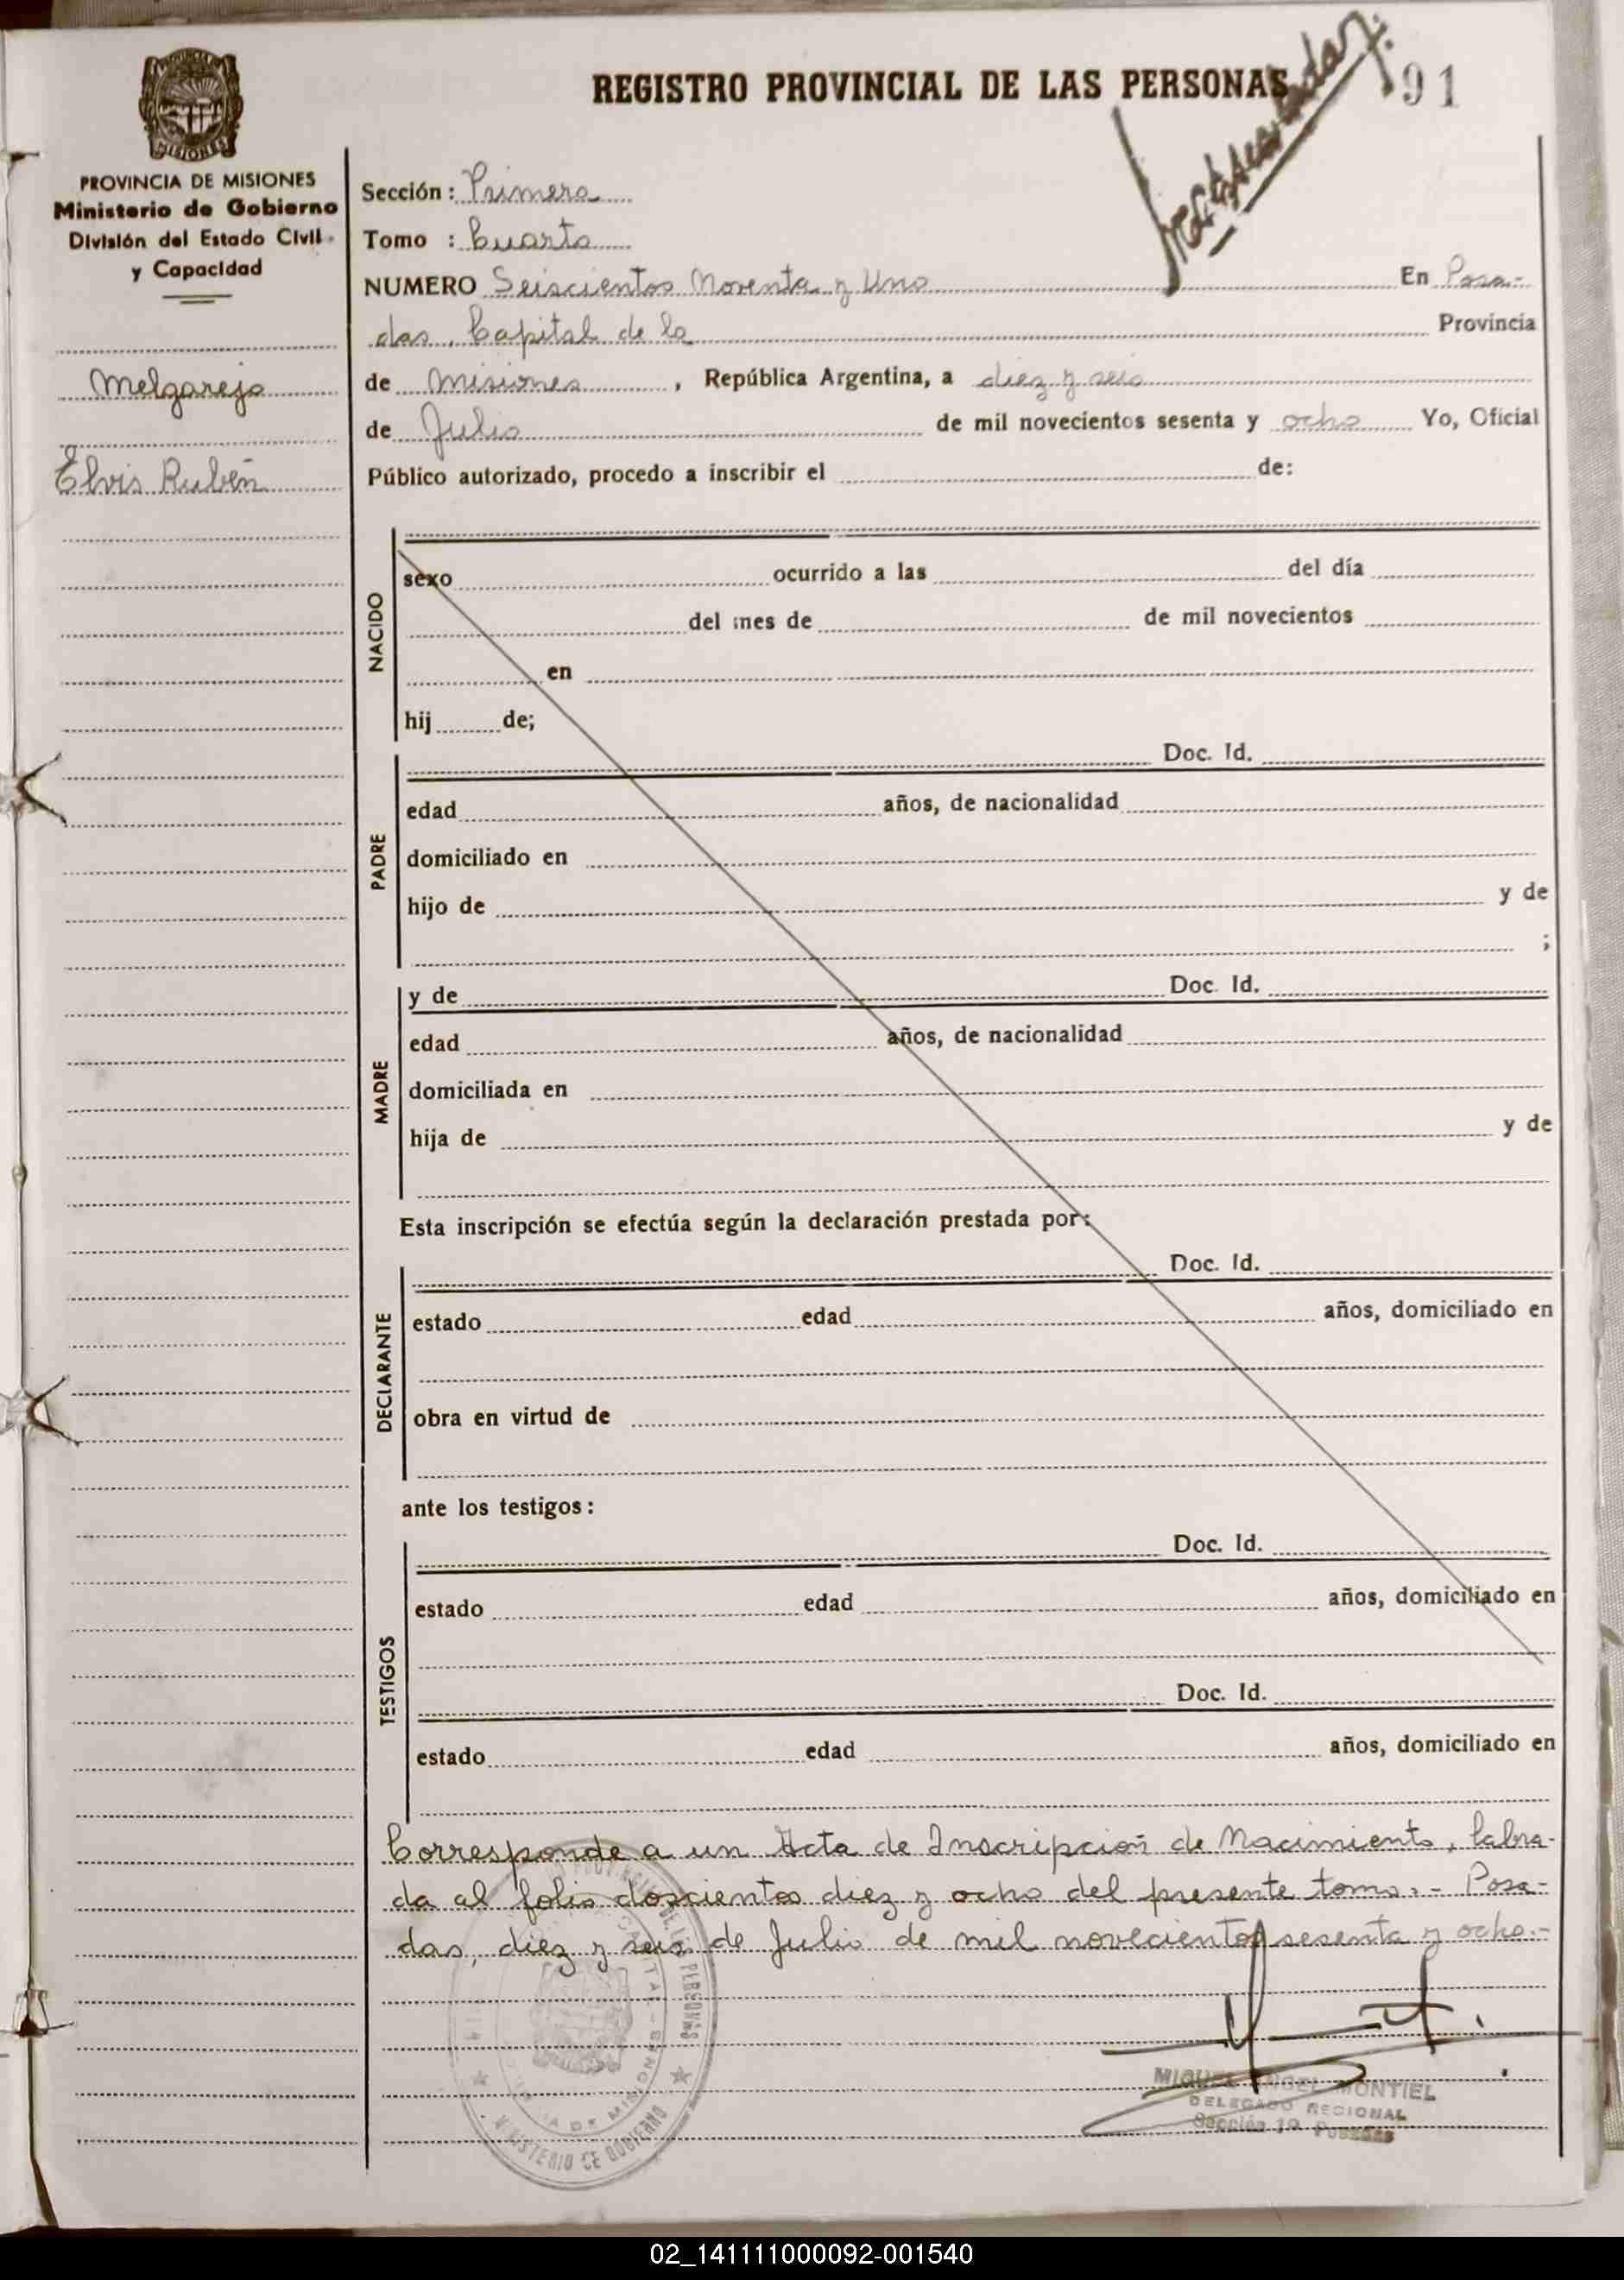 REGISTRO PROVINCIAL DE LAS PERSONAS
91
MISIONES
PROVINCIA DE MISIONES
Ministerio de Gobierno
División del Estado Civil
y Capacidad
Melgarejo
Elvis Rubén
Sección: Primera
Tomo : Cuarto
NUMERO Seiscientos Noventa y Uno En Posa-
das, Capital de la Provincia
de Misiones, República Argentina, a diez y seis
de Julio de mil novecientos sesenta y ocho Yo, Oficial
Público autorizado, procedo a inscribir el de:
NACIDO
sexo ocurrido a las del día
del mes de de mil novecientos
en
hij de;
PADRE
Doc. Id.
edad años, de nacionalidad
domiciliado en
hijo de y de
;
MADRE
y de Doc. Id.
edad años, de nacionalidad
domiciliada en
hija de y de
Esta inscripción se efectúa según la declaración prestada por:
DECLARANTE
Doc. Id.
estado edad años, domiciliado en
obra en virtud de
ante los testigos:
TESTIGOS
Doc. Id.
estado edad años, domiciliado en
Doc. Id.
estado edad años, domiciliado en
Corresponde a un Acta de Inscripción de Nacimiento, labra-
da al folio doscientos diez y ocho del presente tomo.- Posa-
das, diez y seis de Julio de mil novecientos sesenta y ocho.-
MINISTERIO DE GOBIERNO
MIGUEL ANGEL MONTIEL
DELEGADO REGIONAL
Sección 1ª Posadas
02_141111000092-001540